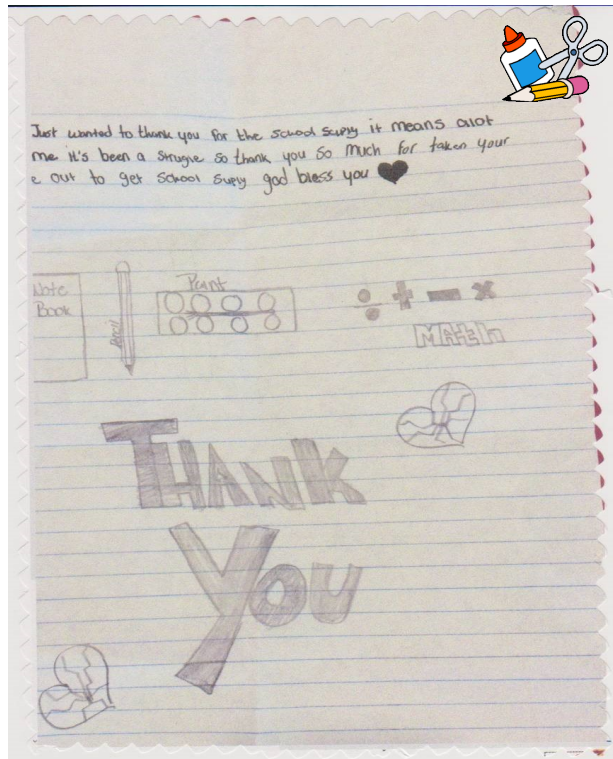 Just wanted to thank you for the school supply it means alot
me it's been a strugle so thank you so much for taken your
e out to get school suply god bless you
Note
Book
Pencil
Paint
÷ + - ×
Math
THANK
You